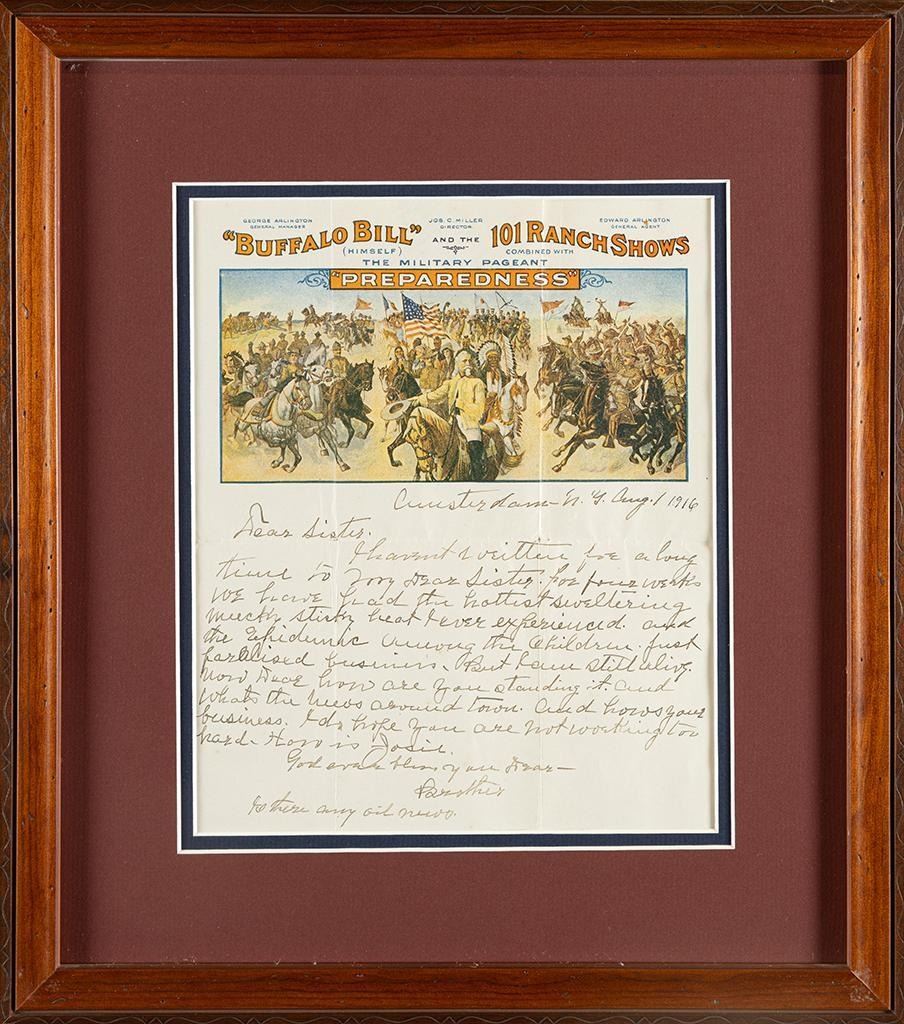 GEORGE ARLINGTON
GENERAL MANAGER
JOS. C. MILLER
DIRECTOR
EDWARD ARLINGTON
GENERAL AGENT
"BUFFALO BILL" AND THE 101 RANCH SHOWS
(HIMSELF) COMBINED WITH
THE MILITARY PAGEANT
"PREPAREDNESS"
Amsterdam - N.Y. Aug. 1 1916
Dear Sister.
I havent written for a long
time to my Dear Sister. for four weeks
we have had the hottest sweltering
mucky sticky heat I ever experienced. and
the Epidemic among the Children. Just
paralised business. But I am still alive.
Now Dear how are you standing it. and
Whats the news around town. and hows your
business. I do hope you are not working too
hard. How is Josie.
God bless you Dear -
Brother
Is there any oil news.